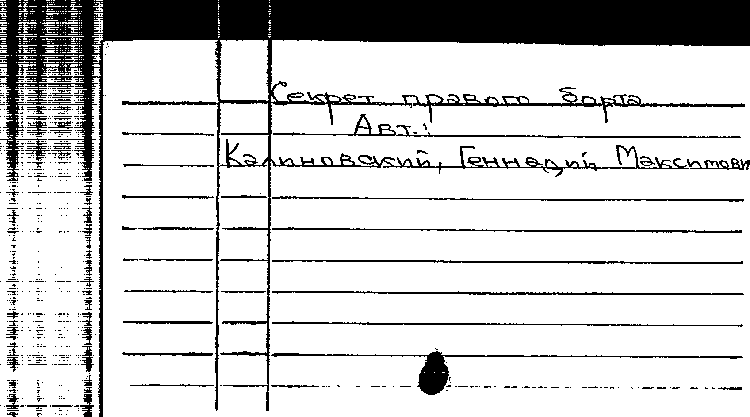 Секрет правого борта
Авт.:
Калиновский, Геннадий Максимович